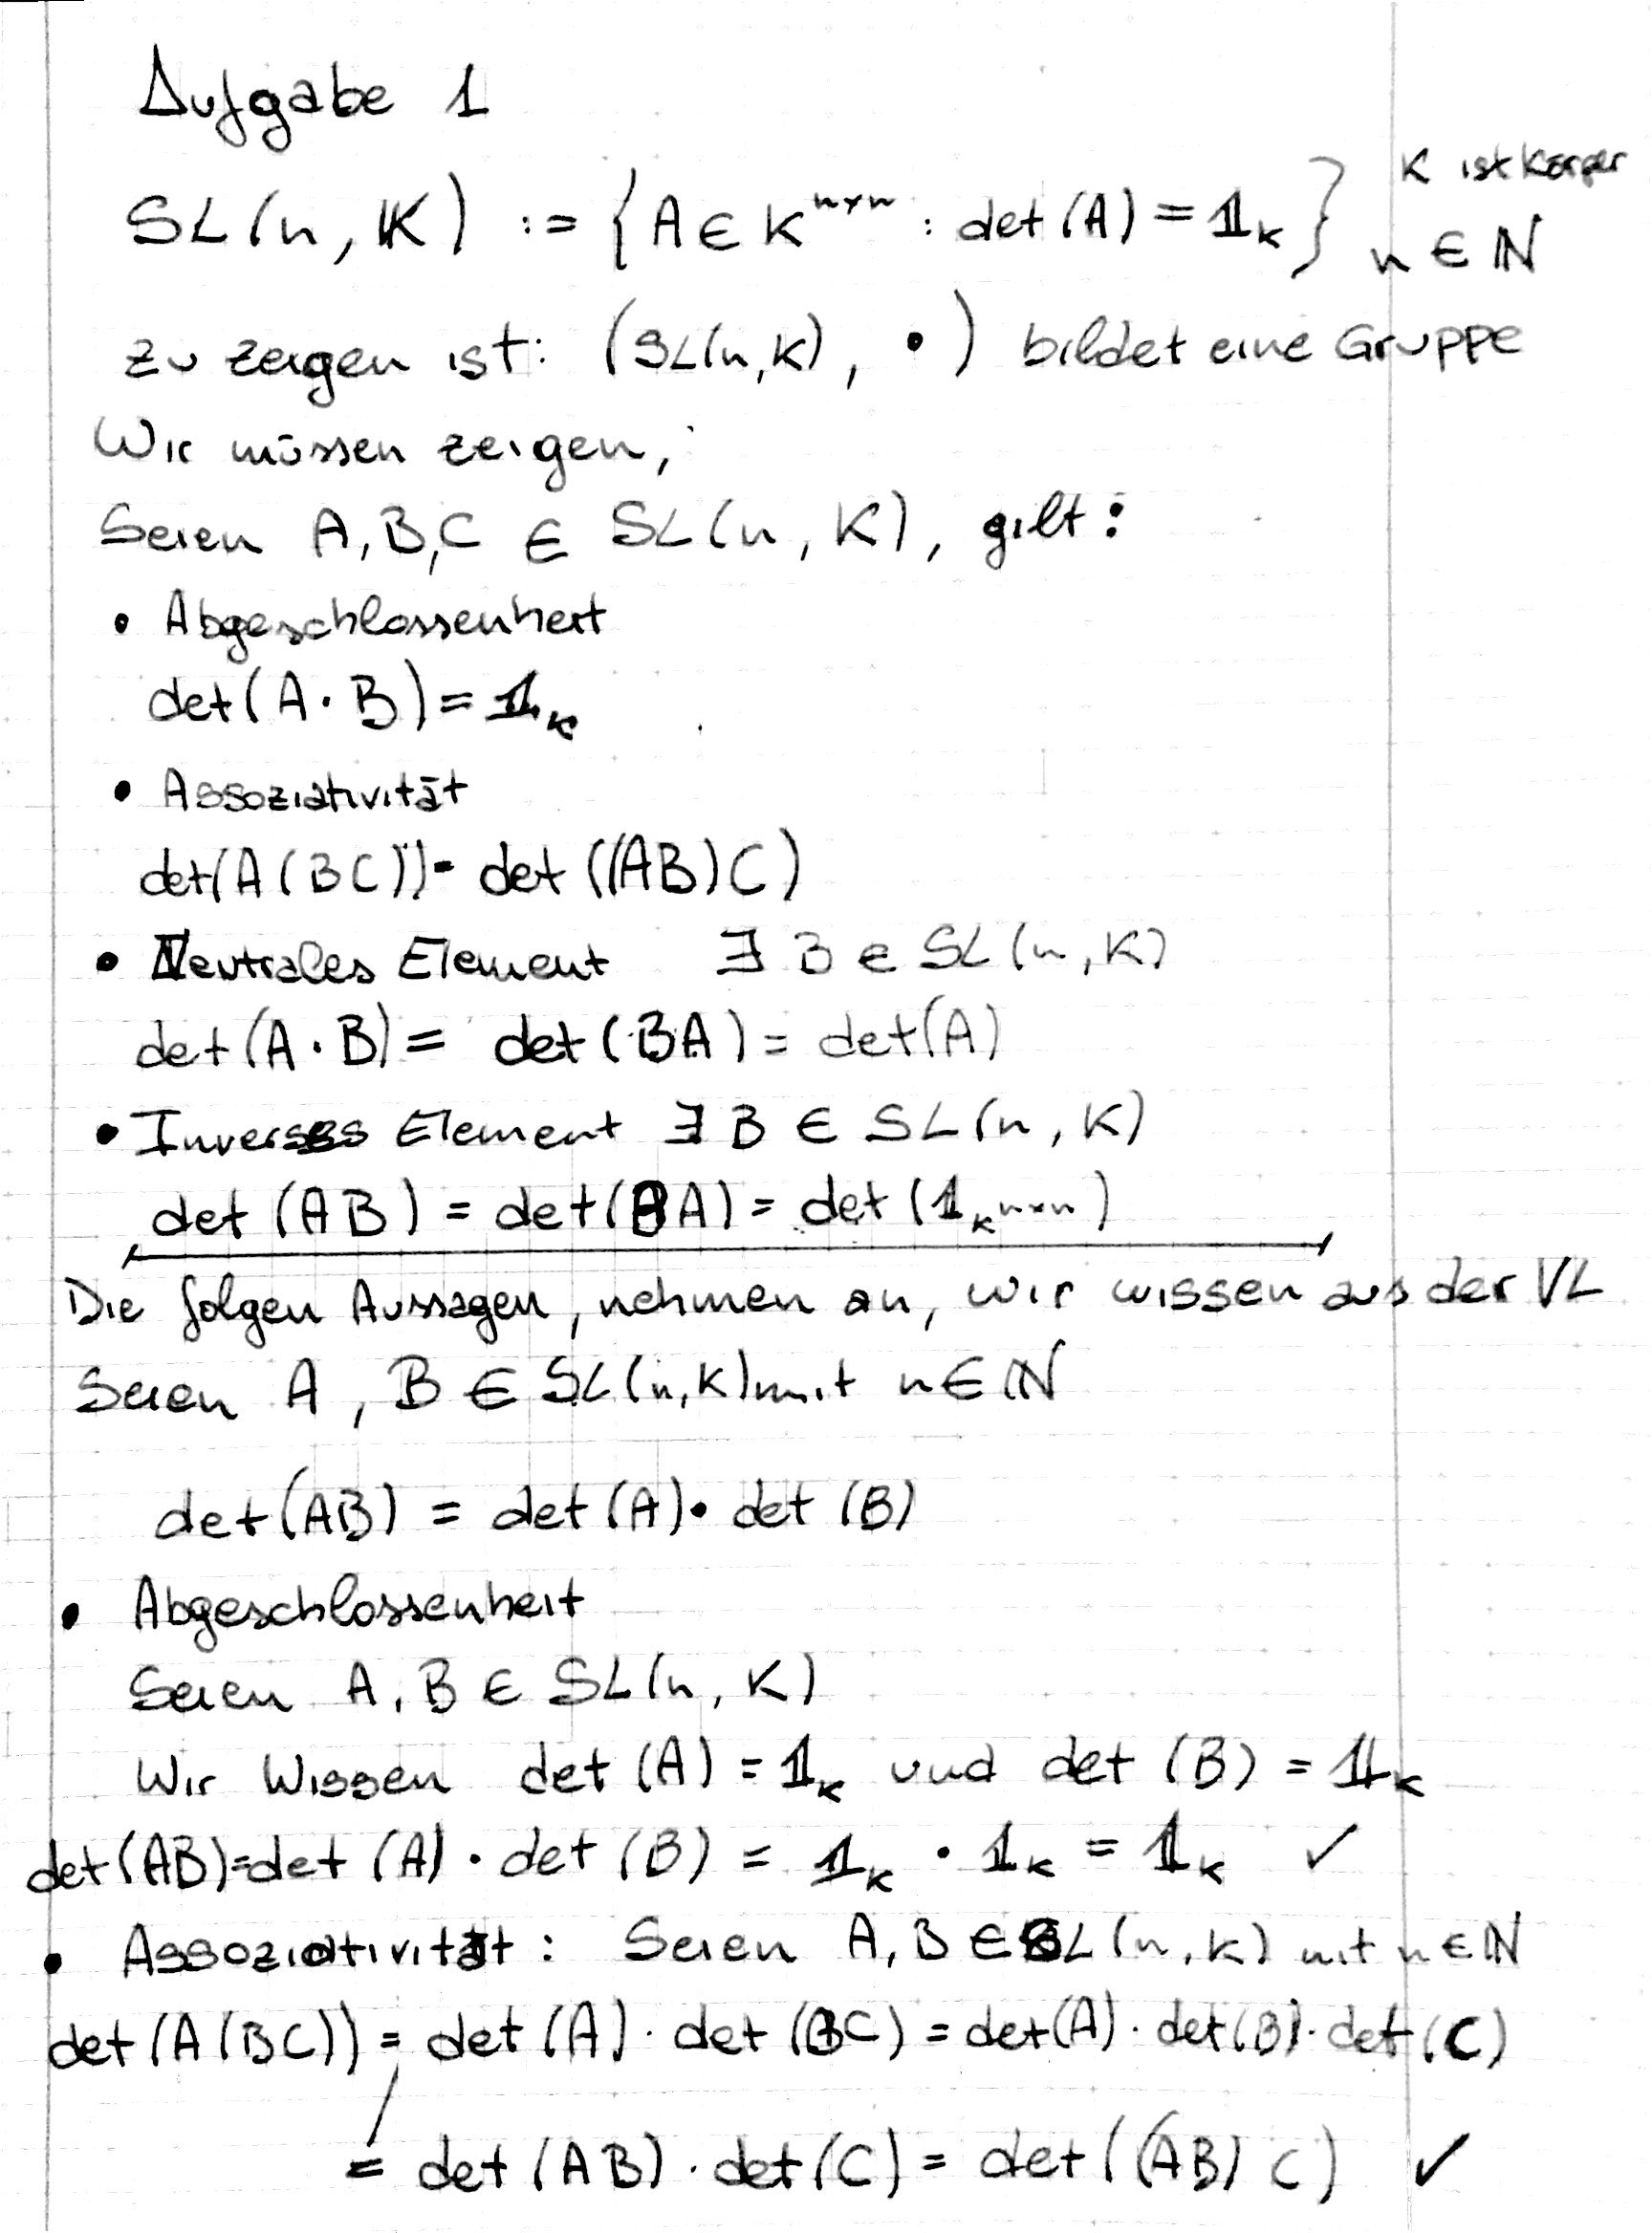 Aufgabe 1
SL(n, K) := {A ∈ K^{n×n} : det(A) = 1_K} K ist Körper
n ∈ ℕ
zu zeigen ist: (SL(n,K), •) bildet eine Gruppe
Wir müssen zeigen,
Seien A,B,C ∈ SL(n, K), gilt:
• Abgeschlossenheit
det(A·B) = 1_K
• Assoziativität
det(A(BC)) = det((AB)C)
• Neutrales Element ∃ B ∈ SL(n,K)
det(A·B) = det(BA) = det(A)
• Inverses Element ∃ B ∈ SL(n, K)
det(AB) = det(BA) = det(1_{K^{n×n}})
Die folgen Aussagen, nehmen an, wir wissen aus der VL
Seien A, B ∈ SL(n,K) mit n ∈ ℕ
det(AB) = det(A)·det(B)
• Abgeschlossenheit
Seien A, B ∈ SL(n, K)
Wir Wissen det(A) = 1_K und det(B) = 1_K
det(AB) = det(A)·det(B) = 1_K · 1_K = 1_K ✓
• Assoziativität: Seien A, B ∈ SL(n, K) mit n ∈ ℕ
det(A(BC)) = det(A)·det(BC) = det(A)·det(B)·det(C)
= det(AB)·det(C) = det((AB)C) ✓